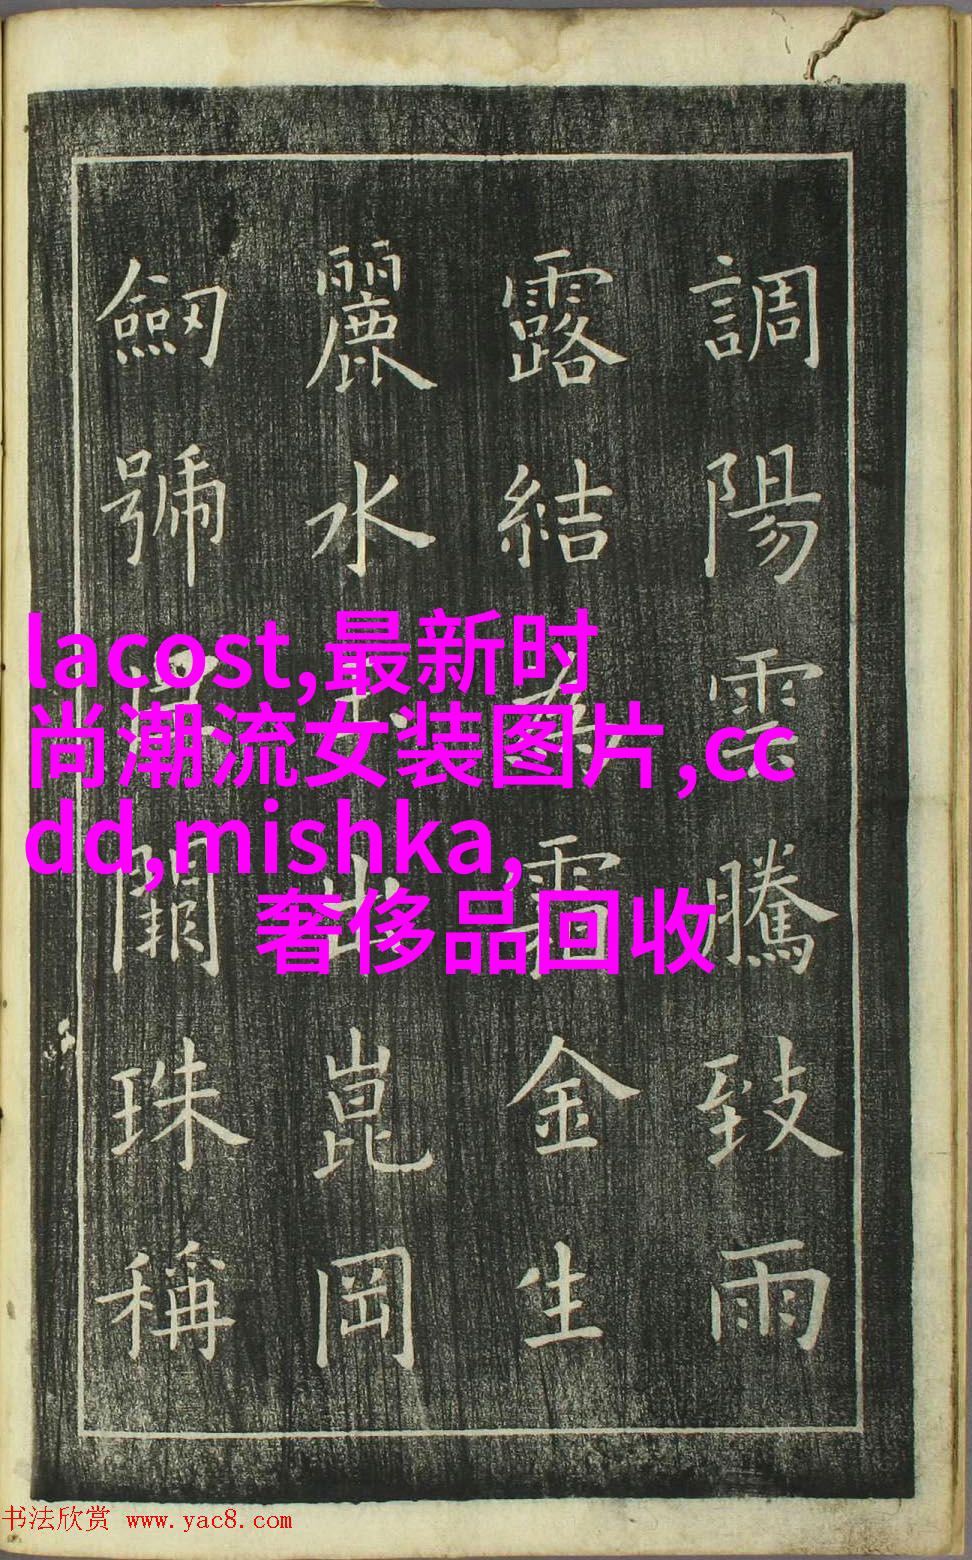 調陽雲騰致雨
露結霜金生
麗水出崑岡
劒號闕珠稱
lacost,最新时
尚潮流女装图片,cc
dd,mishka,
奢侈品回收
书法欣赏 www.yac8.com